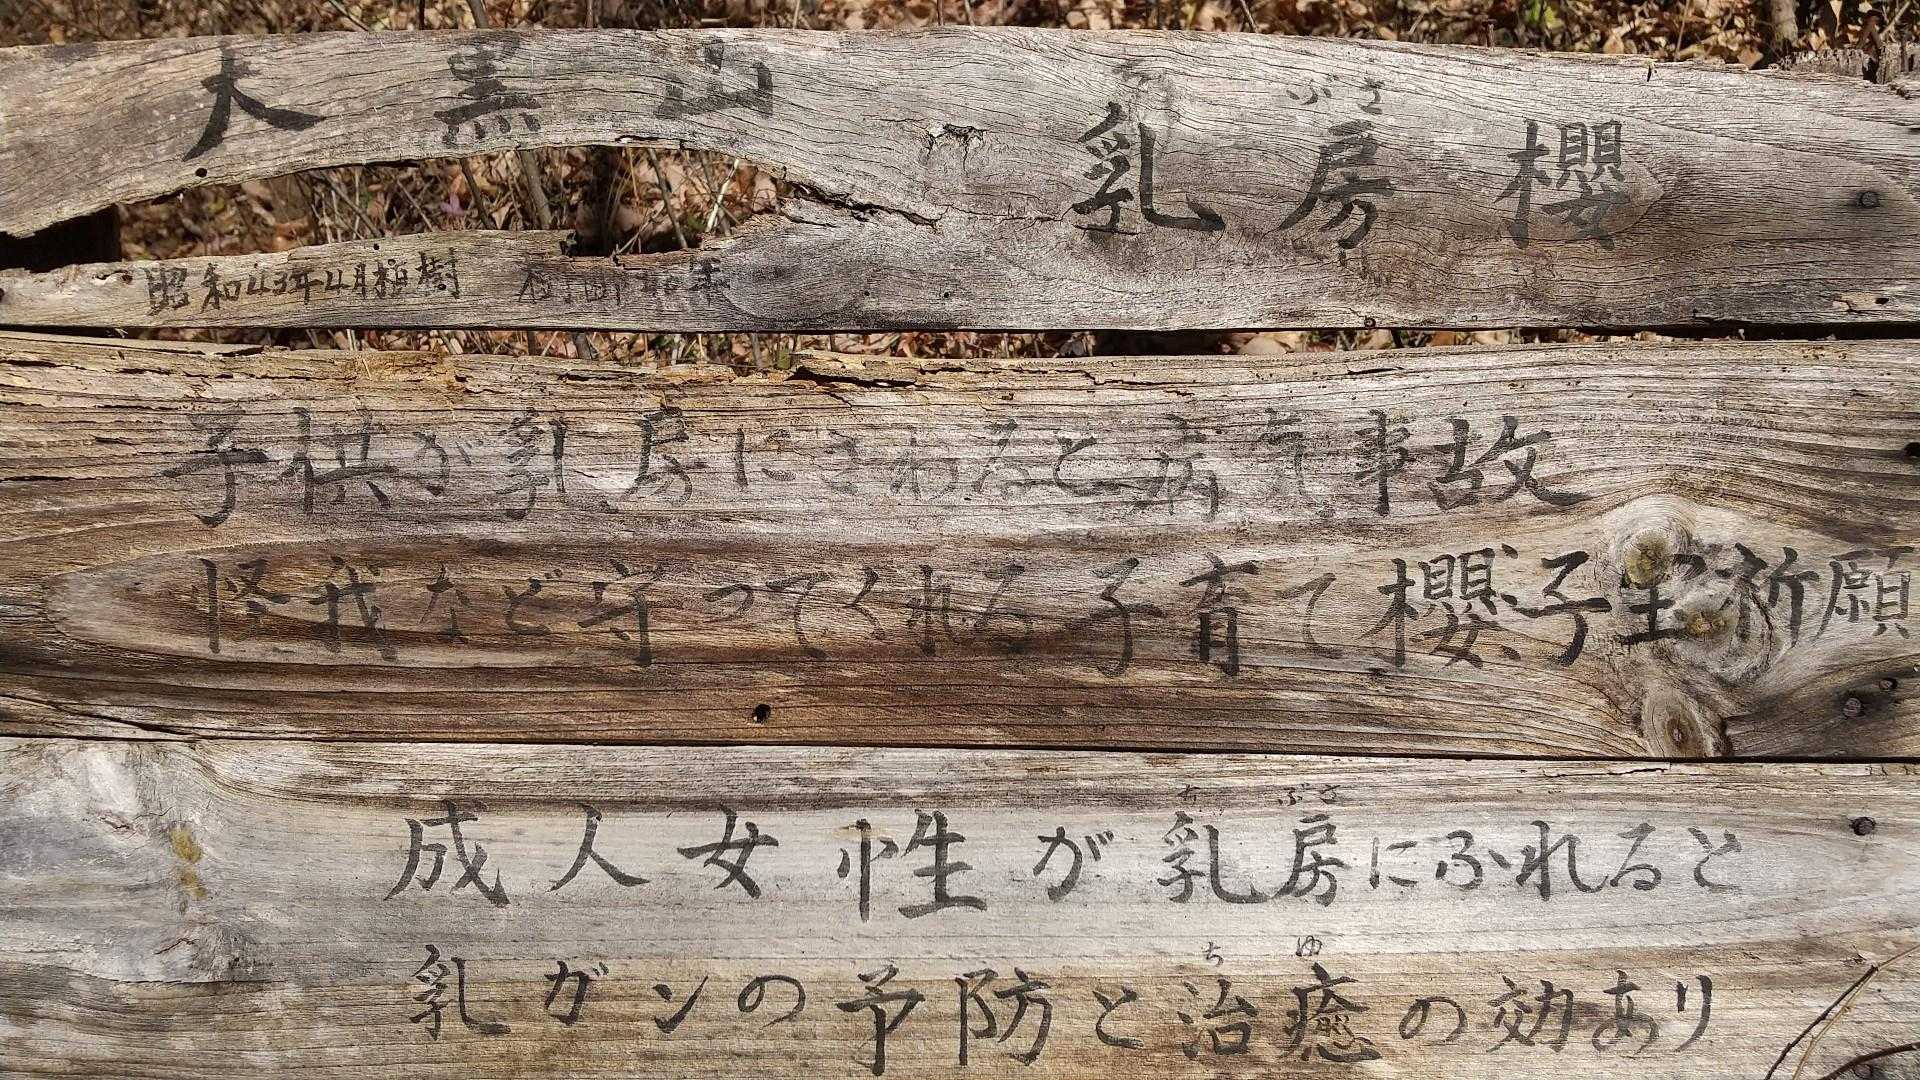 大黒山 乳房櫻
ぶさ
昭和43年4月植樹 樹齢40年
子供が乳房にさわると病気事故
怪我など守ってくれる子育て櫻、子宝祈願
ち ぶさ
成人女性が乳房にふれると
ち ゆ
乳ガンの予防と治癒の効あり